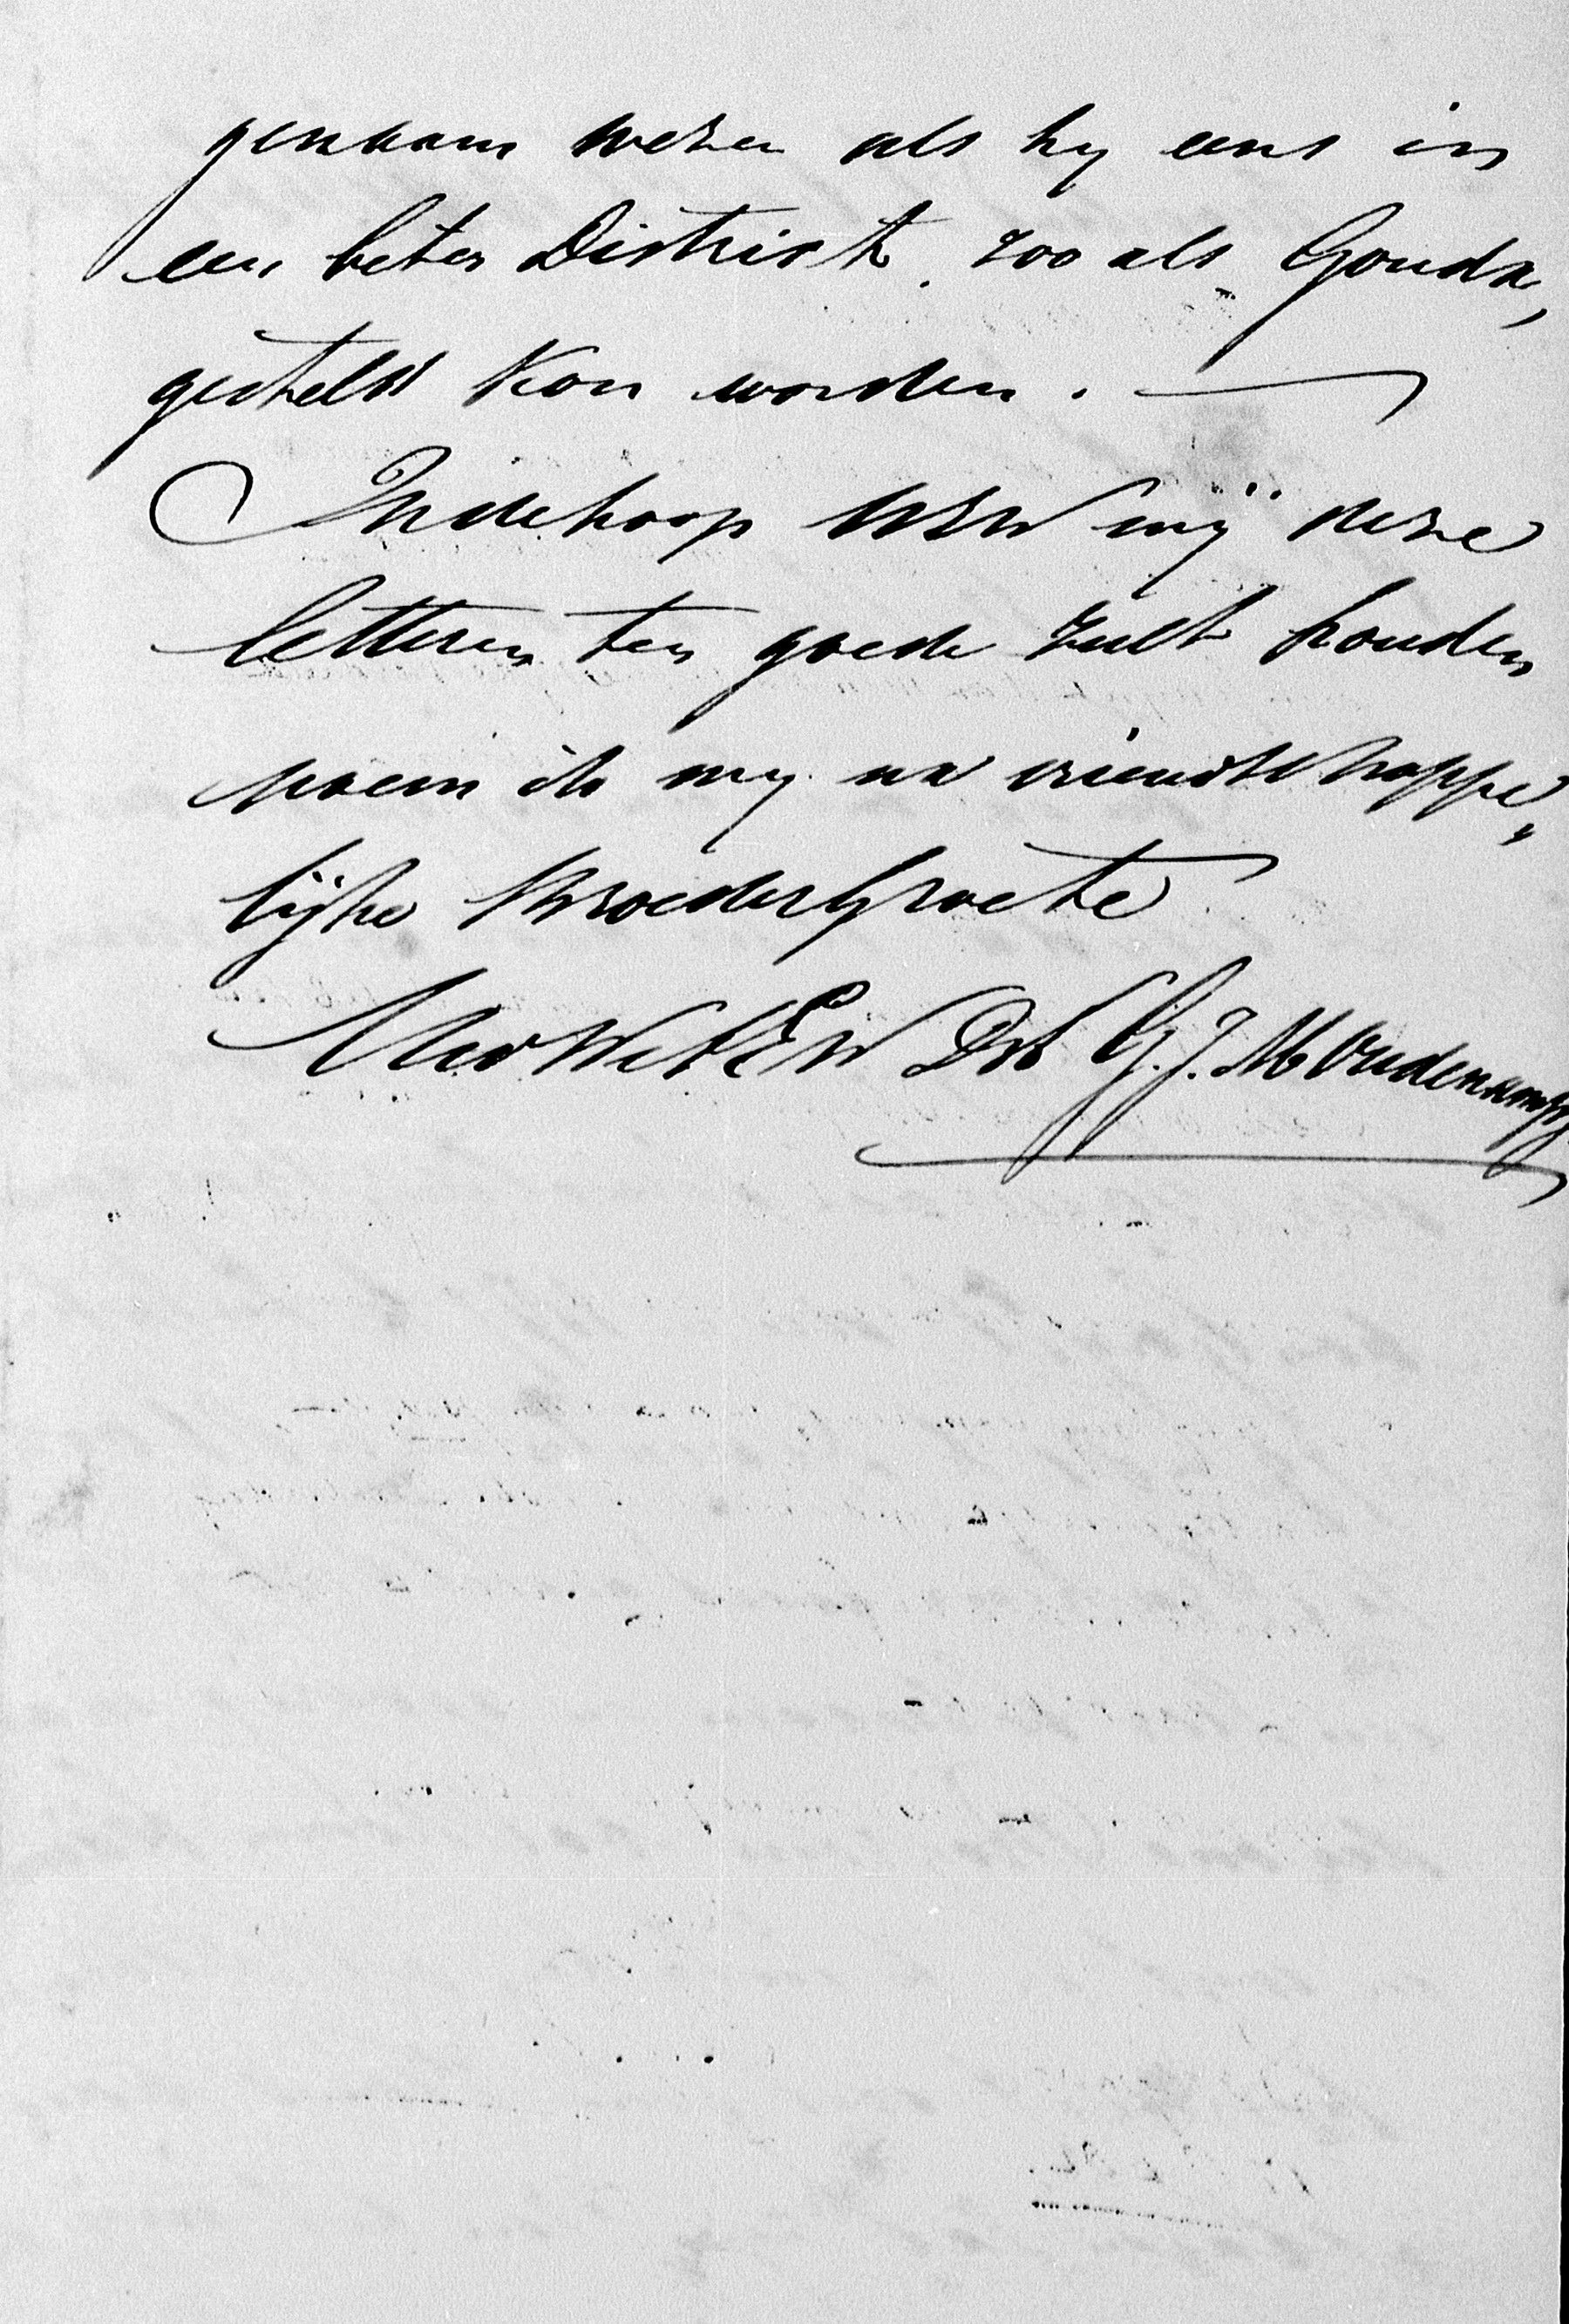 genaam wezen als hy eens in
een beter District, zoo als Gouda,
gesteld kon worden. —
In de hoop UZEW mÿ deze
letteren ten goede zult houden
noem ik my na vriendschappe„
lijke Broedergroete
UwZEW Dr G. J. M Oudenkamp